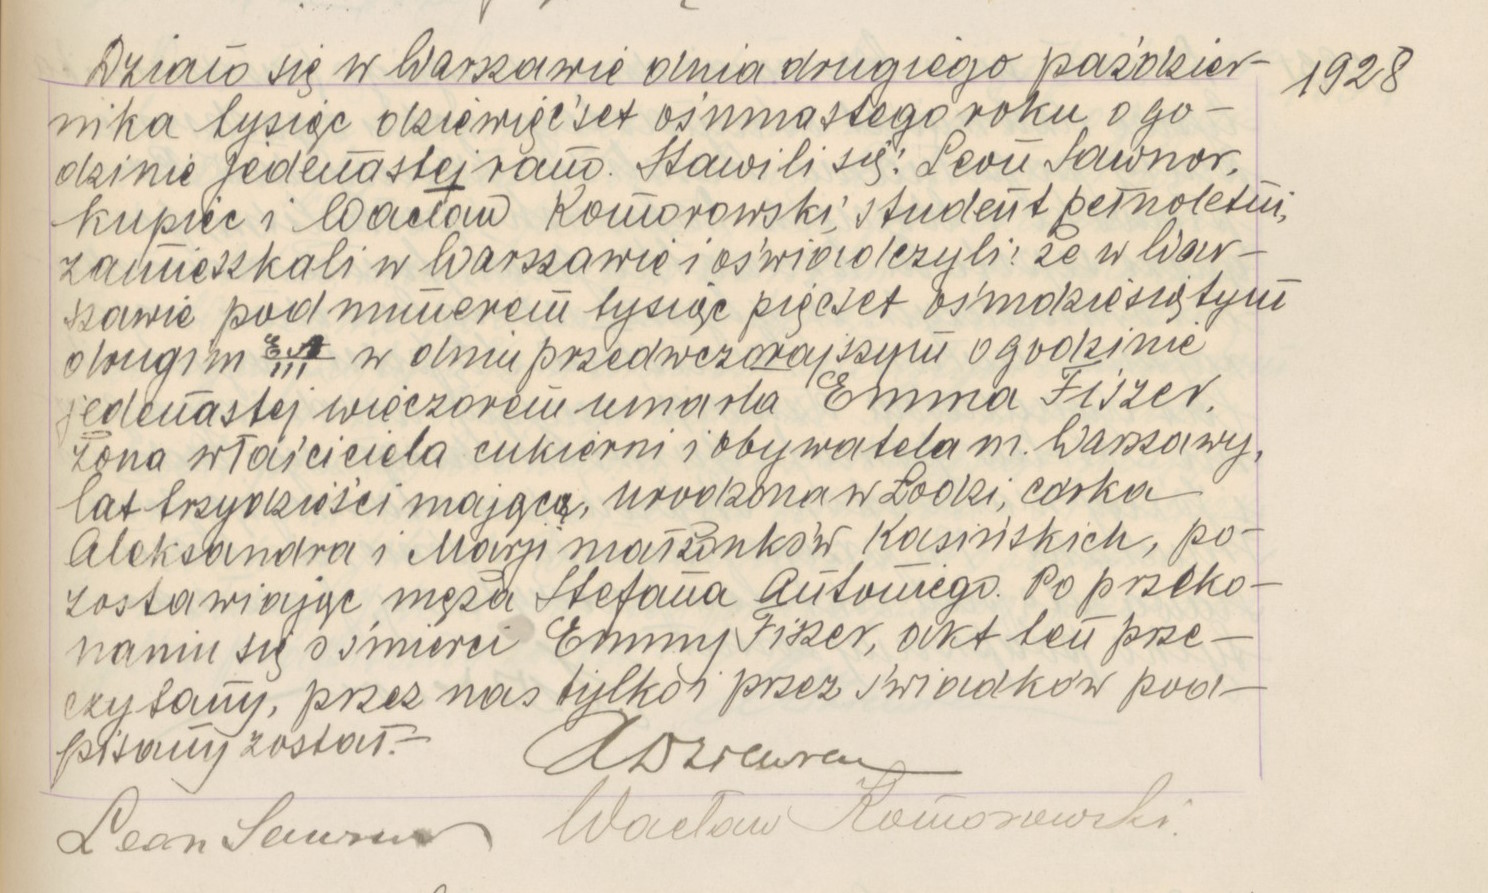 Działo się w Warszawie dnia drugiego paździer-
1928
nika tysiąc dziewięćset ośmnastego roku o go-
dzinie jedenastej rano. Stawili się: Leon Sawnor,
kupiec i Wacław Komorowski, student pełnoletni,
zamieszkali w Warszawie i oświadczyli: że w War-
szawie pod numerem tysiąc pięćset ośmdziesiątym
drugim w dniu przedwczorajszym o godzinie
jedenastej wieczorem umarła Emma Fiszer,
żona właściciela cukierni i obywatela m. Warszawy,
lat trzydzieści mająca, urodzona w Łodzi, córka
Aleksandra i Marji małżonków Kasińskich, po-
zostawiając męża Stefana Antoniego. Po przeko-
naniu się o śmierci Emmy Fiszer, akt ten prze-
czytany, przez nas tylko i przez świadków pod-
pisany został.-
Leon Wacław Komorowski.